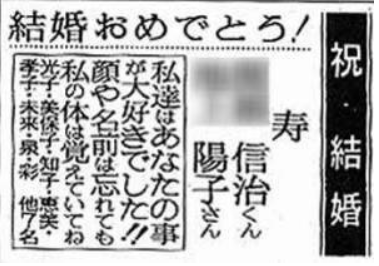 祝・結婚
結婚おめでとう!
寿
信治くん
陽子さん
私達はあなたの事
が大好きでした!!
顔や名前は忘れても
私の体は覚えていてね
光子・美保子・知子・恵美・
孝子・未来・泉・彩 他7名